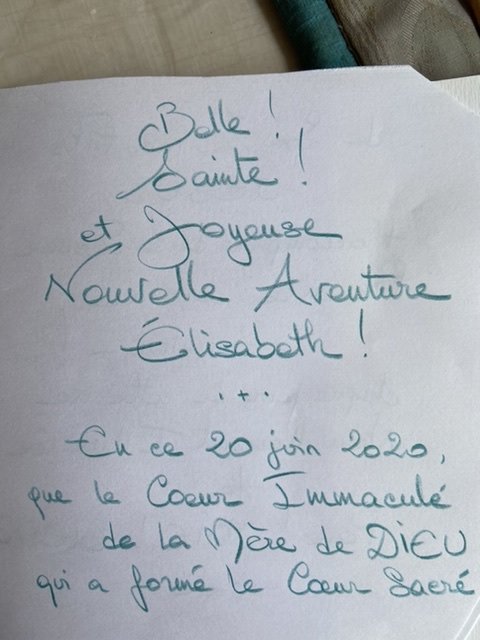 Belle !
Sainte !
et Joyeuse
Nouvelle Aventure
Élisabeth !
. + .
En ce 20 juin 2020,
que le Coeur Immaculé
de la Mère de DIEU
qui a formé le Cœur Sacré